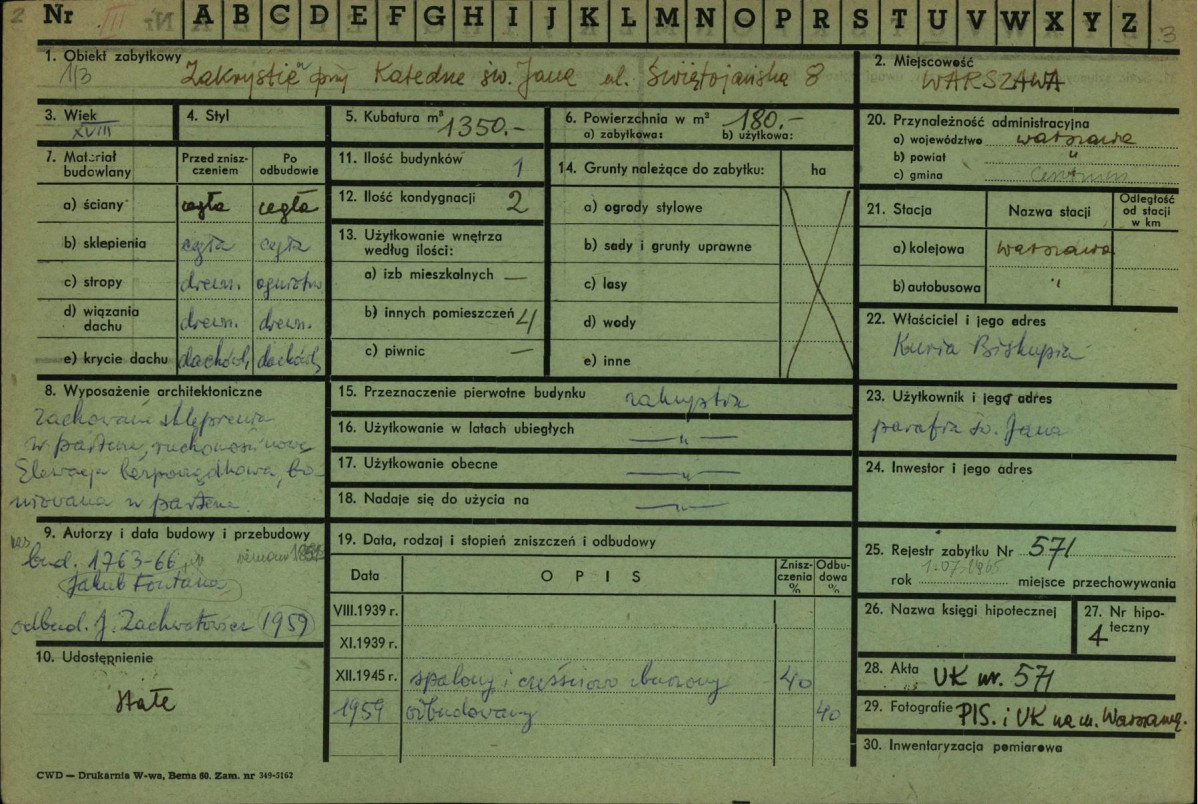 2 Nr III A B C D E F G H I J K L M N O P R S T U V W X Y Z 3
1. Obiekt zabytkowy Zakrystia przy Katedrze św. Jana ul. Świętojańska 8
1/3
2. Miejscowość
WARSZAWA
3. Wiek
XVIII
4. Styl
5. Kubatura m³ 1350.-
6. Powierzchnia w m² 180.-
a) zabytkowa: b) użytkowa:
7. Materiał budowlany
Przed zniszczeniem
Po odbudowie
a) ściany cegła cegła
b) sklepienia cegła cegła
c) stropy drewn. ogniotrw
d) wiązania dachu drewn. drewn.
e) krycie dachu dachówk. dachówk.
11. Ilość budynków 1
12. Ilość kondygnacji 2
13. Użytkowanie wnętrza
według ilości:
a) izb mieszkalnych —
b) innych pomieszczeń 4
c) piwnic —
14. Grunty należące do zabytku: ha
a) ogrody stylowe
b) sady i grunty uprawne
c) lasy
d) wody
e) inne
20. Przynależność administracyjna
a) województwo warszawa
b) powiat "
c) gmina Centrum
21. Stacja Nazwa stacji Odległość od stacji w km
a) kolejowa warszawa
b) autobusowa "
22. Właściciel i jego adres
Kuria Biskupia
23. Użytkownik i jego adres
parafia św. Jana
24. Inwestor i jego adres
8. Wyposażenie architektoniczne
zachowane sklepienia
w parterze, ruchomości nowe
Elewacja bezporządkowa, bo-
niowana w parterze
15. Przeznaczenie pierwotne budynku zakrystia
16. Użytkowanie w latach ubiegłych — " —
17. Użytkowanie obecne — " —
18. Nadaje się do użycia na — " —
9. Autorzy i data budowy i przebudowy
bud. 1763-66
Jakub Fontana
odbud. J. Zachwatowicz 1959
10. Udostępnienie
stałe
19. Data, rodzaj i stopień zniszczeń i odbudowy
Data OPIS Zniszczenia % Odbudowa %
VIII.1939 r.
XI.1939 r.
XII.1945 r. spalony i częściowo zburzony 40
1959 odbudowany 40
25. Rejestr zabytku Nr 571
1.07.1965
rok miejsce przechowywania
26. Nazwa księgi hipotecznej
27. Nr hipoteczny
4
28. Akta UK nr. 571
29. Fotografie PIS. i UK na m. Warszawę.
30. Inwentaryzacja pomiarowa
CWD — Drukarnia W-wa, Bema 60. Zam. nr 349-5162